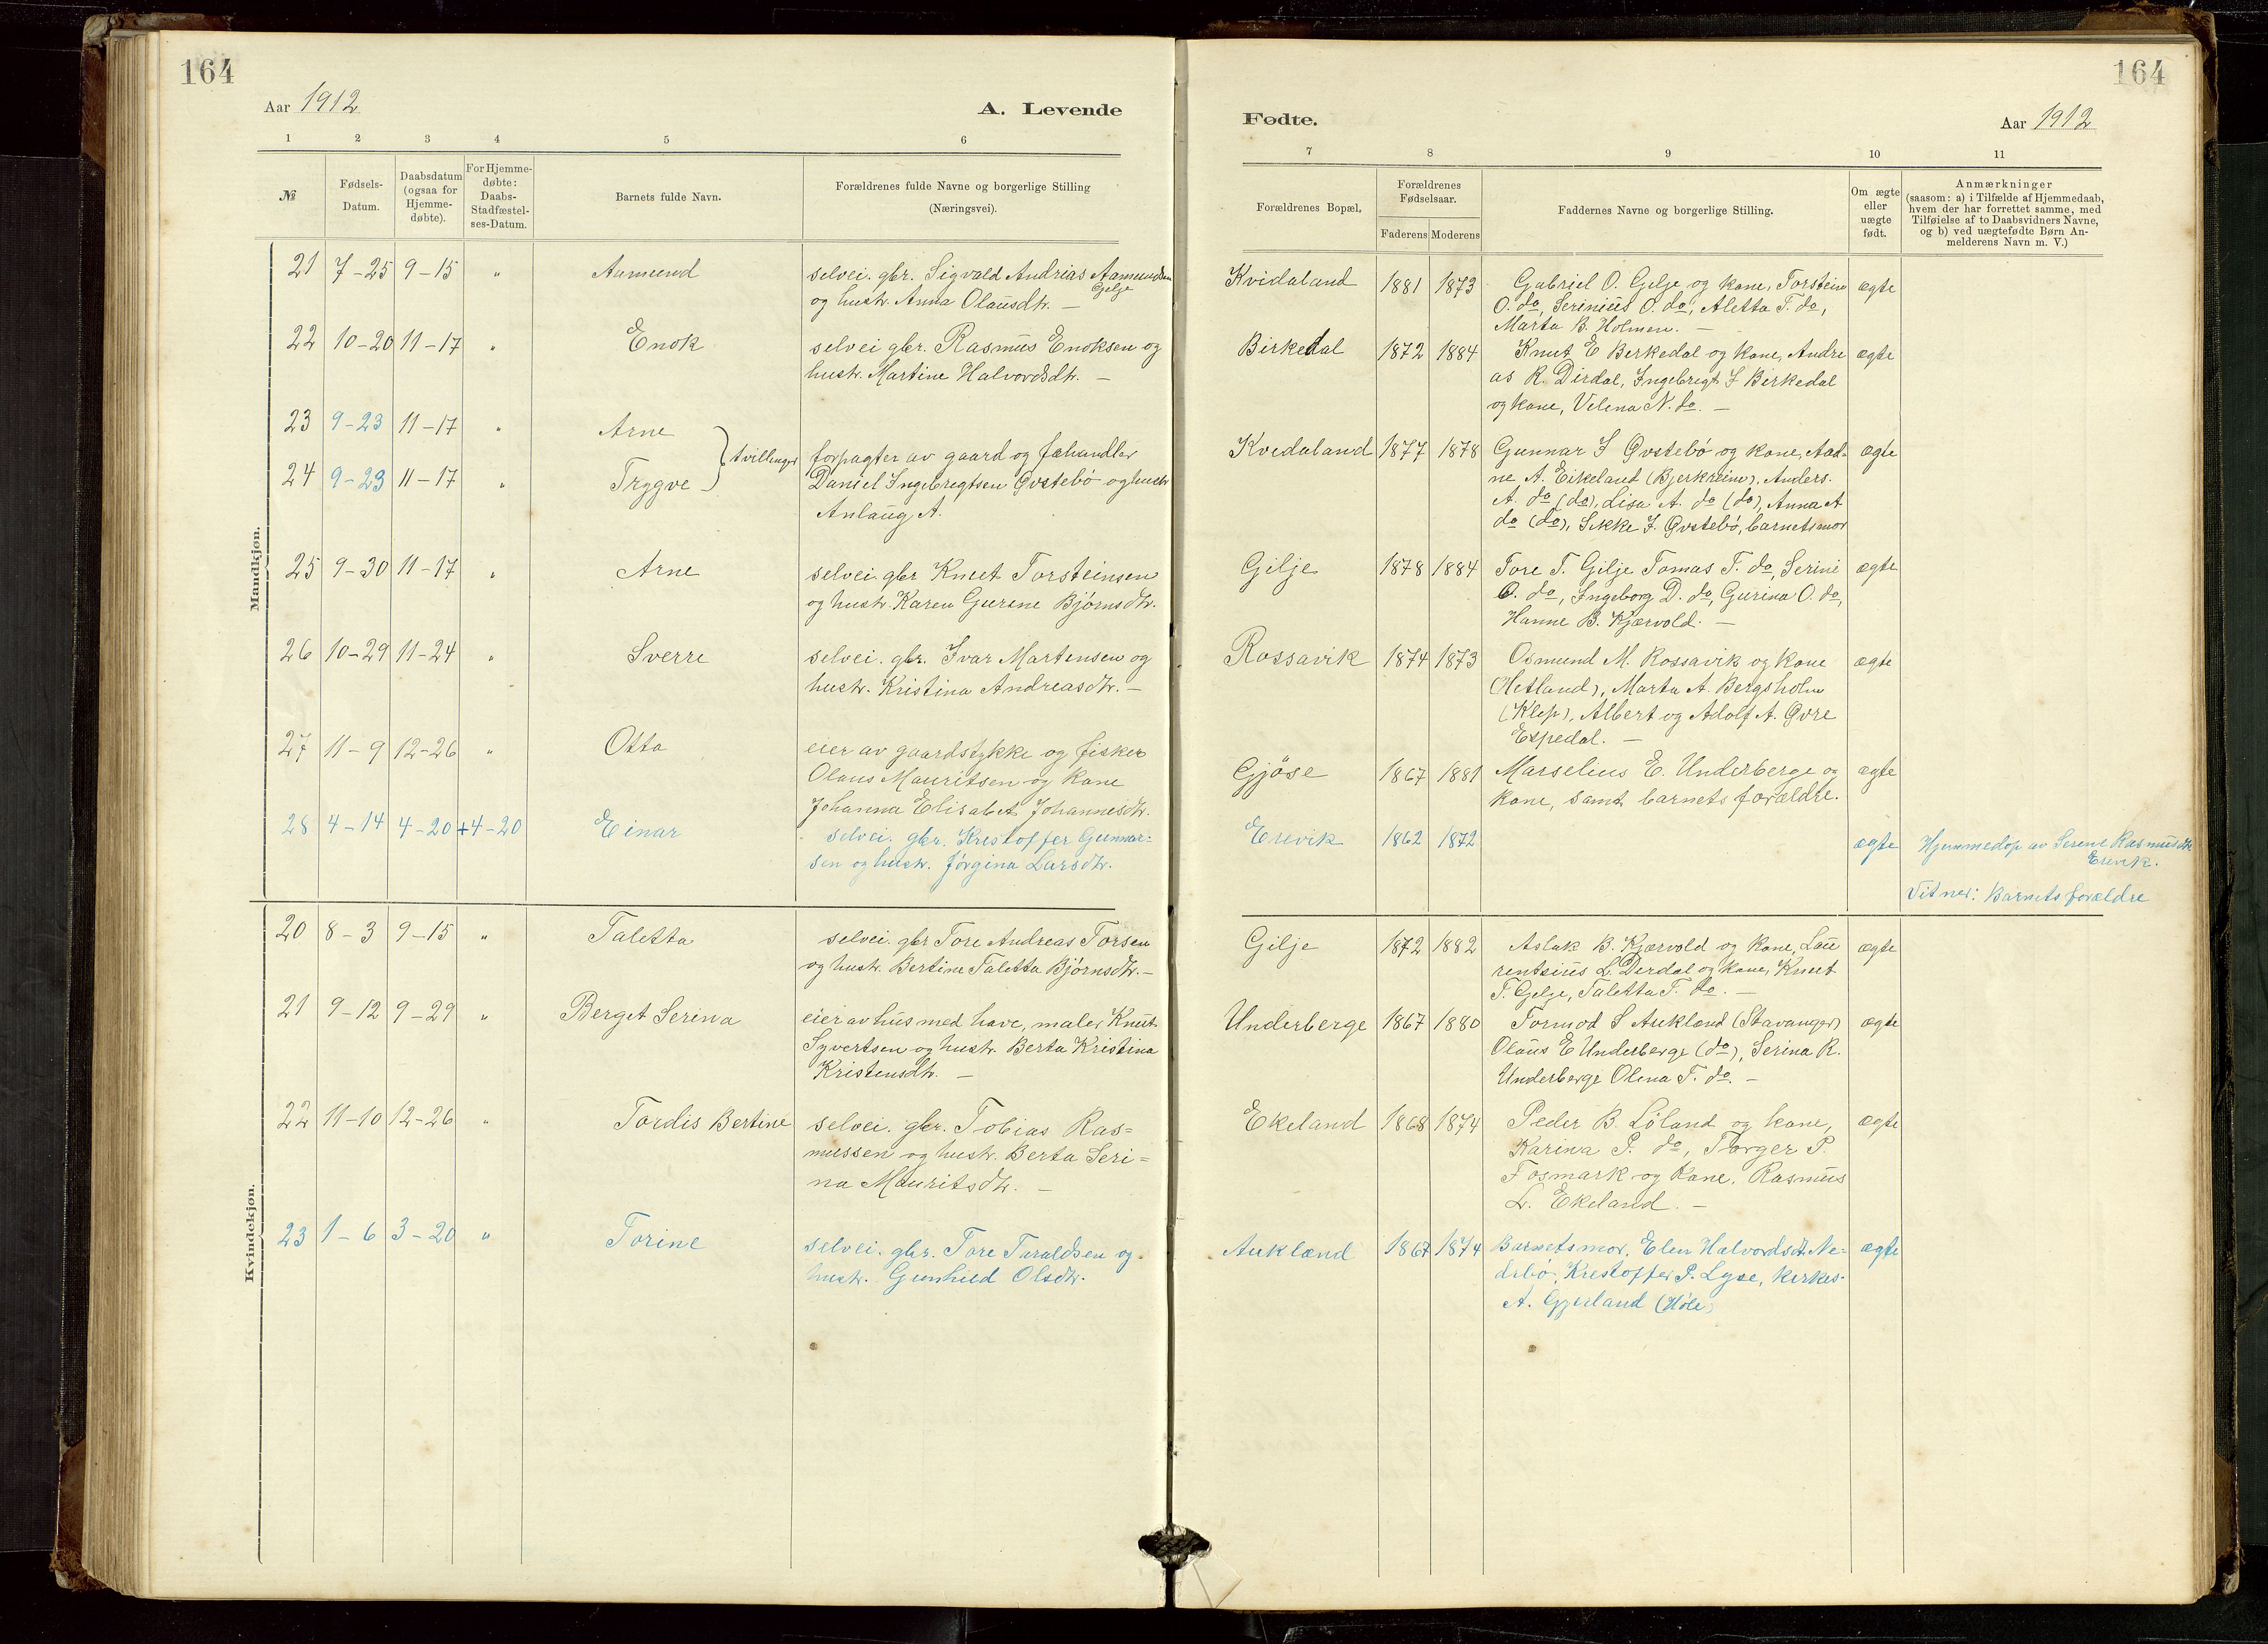 164
164
Aar 1912
A. Levende
Fødte.
Aar 1912
1 2 3 4 5 6
7 8 9 10 11
№
Fødsels-
Datum.
Daabsdatum
(ogsaa for
Hjemme-
døbte).
For Hjemme-
døbte:
Daabs-
Stadfæstel-
ses-Datum.
Barnets fulde Navn.
Forældrenes fulde Navne og borgerlige Stilling
(Næringsvei).
Forældrenes Bopæl.
Forældrenes
Fødselsaar.
Faderens Moderens
Faddernes Navne og borgerlige Stilling.
Om ægte
eller
uægte
født.
Anmærkninger
(saasom: a) i Tilfælde af Hjemmedaab,
hvem der har forrettet samme, med
Tilføielse af to Daabsvidners Navne,
og b) ved uægtefødte Børn An-
melderens Navn m. V.)
Mandkjøn.
21 7-25 9-15 " Aamund
selvei. gbr. Sigvald Andrias Aamundsen
Gilje
og hustr. Anna Olausdtr. —
Kvidaland 1881 1873
Gabriel O. Gilje og kone, Torstein
O. do, Serinius O. do, Aletta T. do,
Marta B. Holmen. —
ægte
22 10-20 11-17 " Enok
selvei gbr. Rasmus Enoksen og
hustr. Martine Halvordsdtr. —
Birkedal 1872 1884
Knut E Berkedal og kone, Andre
as R. Dirdal, Ingebrigt I Birkedal
og kone, Velena N. do. —
ægte
23 9-23 11-17 " Arne
24 9-23 11-17 " Trygve
tvillinger
forpagter av gaard og fehandler
Daniel Ingebregtsen Øvstebø og hustr
Anlaug A.
Kvidaland 1877 1878
Gunnar I Øvstebø og kone, Aad-
ne A. Eikeland (Bjerkreim), Anders.
A. do (do), Lisa A. do (do), Anna A
do (do), Sikke I. Øvstebø, barnets mor
ægte
25 9-30 11-17 " Arne
selvei. gbr Knut Torsteinsen
og hustr. Karen Gurine Bjørnsdtr.
Gilje 1878 1884
Tore T. Gilje Tomas T. do, Serine
O. do, Ingeborg D. do, Gurina O. do,
Hanne B. Kjærvold. —
ægte
26 10-29 11-24 " Sverre
selvei. gbr. Ivar Martensen og
hustr. Kristina Andreasdtr. —
Rossavik 1874 1873
Osmund M. Rossavik og kone
(Hetland), Marta A. Bergsholm
(Klep), Albert og Adolf A. Øvre
Espedal. —
ægte
27 11-9 12-26 " Otto
eier av gaardstykke og fisker
Olaus Mauritsen og kone
Johanna Elisabet Johannesdtr.
Gjøse 1867 1881
Marselius E. Underberge og
kone, samt barnets forældre.
ægte
28 4-14 4-20 +4-20 Einar
selvei. gbr. Kristoffer Gunnar-
sen og hustr. Jørgina Larsdtr.
Erevik 1862 1872
ægte
Hjemmedøp av Serine Rasmusdtr
Erevik.
Vitner: Barnets forældre
Kvindekjøn.
20 8-3 9-15 " Taletta
selvei. gbr Tore Andreas Torsen
og hustr. Bertine Taletta Bjørnsdtr. —
Gilje 1872 1882
Aslak B. Kjærvold og kone, Lau
rentsius L. Derdal og kone, Knut
T. Gilje, Taletta T. do. —
ægte
21 9-12 9-29 " Berget Serina
eier av hus med have, maler Knut
Syvertsen og hustr. Berta Kristina
Kristensdtr. —
Underberge 1867 1880
Tormod S Aukland (Stavanger)
Olaus E Underberge (do), Serina R.
Underberge Olena T. do. —
ægte
22 11-10 12-26 " Tordis Bertine
selvei. gbr. Tobias Ras=
mussen og hustr. Berta Seri=
na Mauritsdtr. —
Ekeland 1868 1874
Peder B. Løland og kone,
Karina P. do, Torger P.
Fosmark og kone, Rasmus
L. Ekeland. —
ægte
23 1-6 3-20 " Torine
selvei. gbr. Tore Taraldsen og
hustr. Gunhild Olsdtr.
Aukland 1867 1874
Barnets mor, Elen Halvordsdt. Ne-
drebø, Kristoffer P. Lyse,
A. Gjeiland (Høle)
ægte